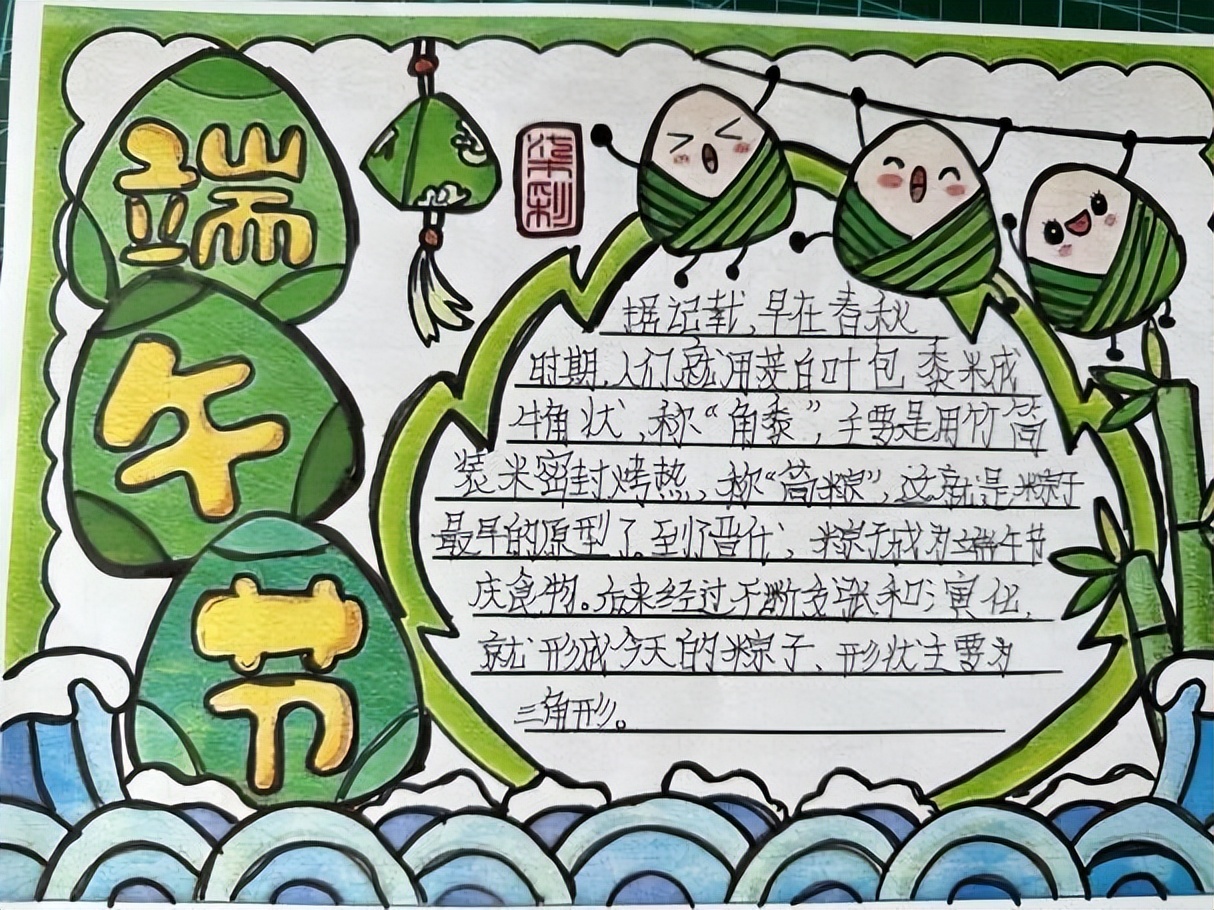 端
午
节
柒彩
据记载,早在春秋
时期,人们就用菱白叶包黍米成
牛角状,称“角黍”,主要是用竹筒
装米密封烤熟,称“筒粽”,这就是粽子
最早的原型了。到了晋代,粽子成为端午节
庆食物。后来经过不断发涨和演化,
就形成今天的粽子、形状主要为
三角形。